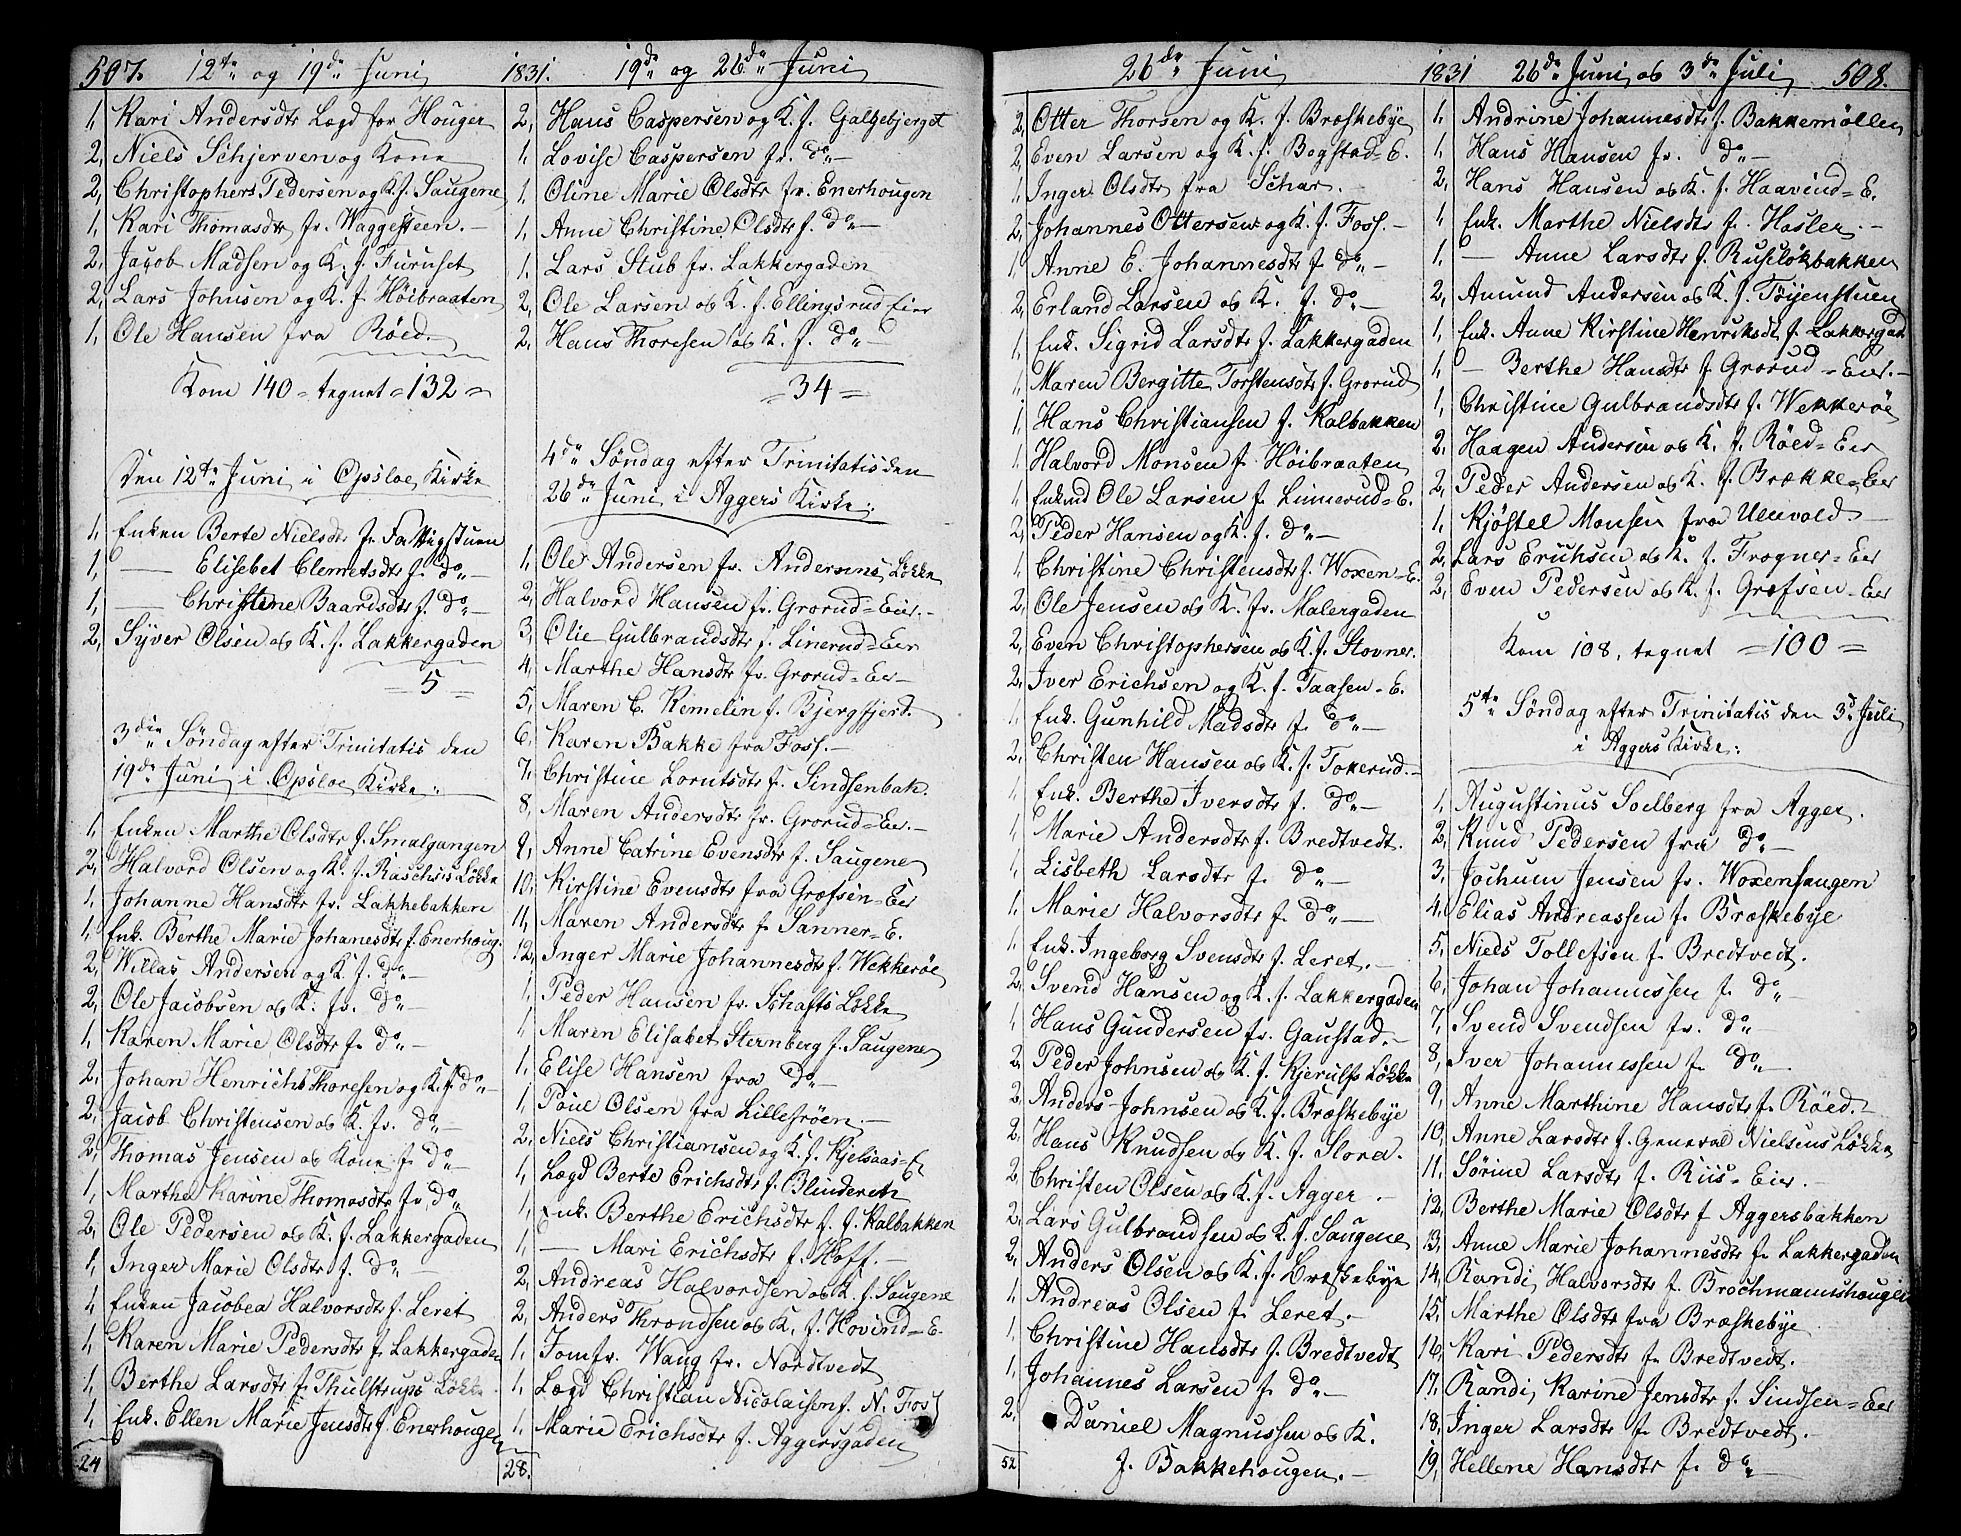 507. 12te og 19de Juni
1, Kari Andersdtr Lægd for Houger
2, Niels Schjerven og Kone
2, Christophers Pedersen og K. f. Saugene
1, Kari Thomasdtr fr. Waggesteen.
2, Jacob Madsen og K. f. Furuset
2, Lars Johnsen og K. f. Höibraaten
1, Ole Hansen fra Röed.
Kom 140 = tegnet = 132 =
Den 12te Juni i Opsloe Kirke
1, Enken Berte Nielsdtr fr. Fattigstuen
1, — Elisebet Clemetsdtr f. do —
1, — Christine Baardsdtr f. do —
2, Syver Olsen og K. f. Lakkergaden
= 5 =
3die Söndag efter Trinitatis den
19de Juni i Opsloe Kirke:
1, Enken Marthe Olsdtr f. Smalgangen
2, Halvord Olsen og K. f. Raschs Lökke
1, Johanne Hansdtr fr. Lakkebakken
1, Enk. Berthe Marie Johanesdtr f. Enerhoug.
2, Willas Andersen og K. f. do —
2, Ole Jacobsen og K. fr. do —
1, Karen Marie Olsdtr fr. do —
2, Johan Henrich Thoresen og K. f. do —
2, Jacob Christensen og K. fr. do —
2, Thomas Jensen og Kone f. do —
1, Marthe Karine Thomasdtr fr. do
2, Ole Pedersen og K. f. Lakkergaden
1, Inger Marie Olsdtr f. do —
1, Enken Jacobea Halvorsdtr f. Leret
1, Karen Marie Pedersdtr f. Lakkergaden
1, Berthe Larsdtr f. Thulstrups Lökke
1, Enk. Ellen Marie Jensdtr f. Enerhougen
24
1831. 19de og 26de Juni
2, Hans Caspersen og K. f. Galgebjerget
1, Lovise Caspersen fr. do —
1, Oline Marie Olsdtr fr. Enerhougen
1, Anne Christine Olsdtr f. do —
1, Lars Stub fr. Lakkergaden
2, Ole Larsen og K. f. Ellingsrud Eier
2, Hans Thoresen og K. f. do —
= 34 =
4de Söndag efter Trinitatis den
26de Juni i Aggers Kirke:
1, Ole Andersen fr. Andersens Lökke
2, Halvord Hansen fr. Grorud = Eie. —
3, Olie Gulbrandsdtr f. Linerud = Eie
4, Marthe Hansdtr fr. Grorud = Eie —
5, Maren C. Remelin f. Bjergfjerd.
6, Karen Bakke fra Foss. —
7, Christine Lorntsdtr f. Sindsenbak.
8, Maren Andersdtr fr. Grorud = Eie. —
9, Anne Catrine Evensdtr f. Saugene
10, Kirstine Evensdtr fra Græfsen = Eie
11, Maren Andersdtr f. Sanner = E.
12, Inger Marie Johannesdtr f. Wekkeröe
1, Peder Hansen fr. Schafts Lökke
1, Maren Elisabet Sternberg f. Saugene
1, Elise Hansen fra do —
1, Poul Olsen fra Lillefröen. —
2, Niels Christiansen og K. f. Kjelsaas = E
1, Lægd Berte Erichsdtr f. Blinderen
1, Enk. Berthe Erichsdtr f. f. Kalbakken
1, — Mari Erichsdtr f. Hoff. —
2, Andreas Halvordsen og K. f. Saugene
2, Anders Throndsen og K. f. Hovind = E.
1, Jomfr. Wang fr. Nordtvedt
1, Lægd Christian Nicolaisen f. N. Foss
1, Marie Erichsdtr f. Aggersgaden
28.
26de Juni
2, Otter Thorsen og K. f. Bræskebye
2, Even Larsen og K. f. Bogstad = E.
1, Inger Olsdtr fra Schar. —
2, Johannes Ottersen og K. f. Foss. —
1, Anne E. Johannesdtr f. do —
2, Erland Larsen og K. f. do —
1, Enk. Sigrid Larsdtr f. Lakkergaden
1, Maren Bergitte Torstensdtr f. Grorud
1, Hans Christiansen f. Kalbakken
1, Halvord Monsen f. Höibraaten
1, Enkmd Ole Larsen f. Linnerud = E.
2, Peder Hansen og K. f. do —
1, Christine Christensdtr f. Woxen = E.
2, Ole Jensen og K. fr. Malergaden
2, Even Christophersen og K. f. Stovner.
2, Iver Erichsen og K. f. Taasen = E.
1, Enk. Gunhild Madsdtr f. do —
2, Christen Hansen og K. f. Tokerud. —
1, Enk. Berthe Iversdtr f. do —
1, Marie Andersdtr f. Bredtvedt.
1, Lisbeth Larsdtr f. do —
1, Marie Halvorsdtr f. do —
1, Enk. Ingeborg Svensdtr f. Leret. —
2, Svend Hansen og K. f. Lakkergaden
1, Hans Gundersen fr. Gaustad. —
2, Peder Johnsen og K. f. Kjerulfs Lökke
2, Anders Johnsen og K. f. Bræskebye
2, Hans Knudsen og K. f. Slora.
2, Christen Olsen og K. f. Agger. —
2, Lars Gulbrandsen og K. f. Saugene
2, Anders Olsen og K. f. Bræskebye
1, Andreas Olsen f. Leret. —
1, Christine Hansdtr f. Bredtvedt
1, Johannes Larsen f. do —
2, Daniel Magnussen og K.
f. Bakkehougen. —
52
1831 26de Juni og 3de Juli 508.
1, Andrine Johannesdtr f. Bakkemöllen
1, Hans Hansen fr. do —
2, Hans Hansen og K. f. Haavind = E.
1, Enk. Marthe Nielsdtr f. Hasler. —
1, — Anne Larsdtr f. Ruselökbakken
2, Amund Andersen og K. f. Töyenstuen
1, Enk. Anne Kirstine Henriksdt f. Lakkergad
1, — Berthe Hansdtr f. Grorud = Eie. —
1, Christine Gulbrandsdtr f. Wekkeröe
2, Haagen Andersen og K. f. Röed = Eie
2, Peder Andersen og K. f. Brække = Eie
1, Kjöstel Monsen fra Ulevold —
2, Lars Erichsen og K. f. Frogner = Eie
2, Even Pedersen og K. f. Grefsen = Eie
Kom 108, tegnet = 100 =
5te Söndag efter Trinitatis den 3d Juli
i Aggers Kirke:
1, Augustinus Soelberg fra Agger.
2, Knud Pedersen fra do —
3, Jochum Jensen fr. Woxenhaugen
4, Elias Andreassen f. Bræskebye
5, Niels Tollefsen f. Bredtvedt.
6, Johan Johannessen f. do
7, Svend Svendsen fr. do —
8, Iver Johannessen f. do —
9, Anne Marthine Hansdtr f. Röed. —
10, Anne Larsdtr f. General Nielsens Lökke
11, Sörine Larsdtr f. Riis = Eie. —
12, Berthe Marie Olsdtr f. Aggersbakken
13, Anne Marie Johannesdtr f. Lakkergaden
14, Randi Halvorsdtr f. Brochmannshougen
15, Marthe Olsdtr fra Bræskebye
16, Kari Pedersdtr f. Bredtvedt.
17, Randi Karine Jensdtr f. Sindsen = Eie
18, Inger Larsdtr f. Bredtvedt.
19, Hellene Hansdtr f. do —